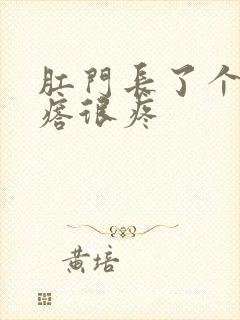 肛門長了个
痞很疼
黄培